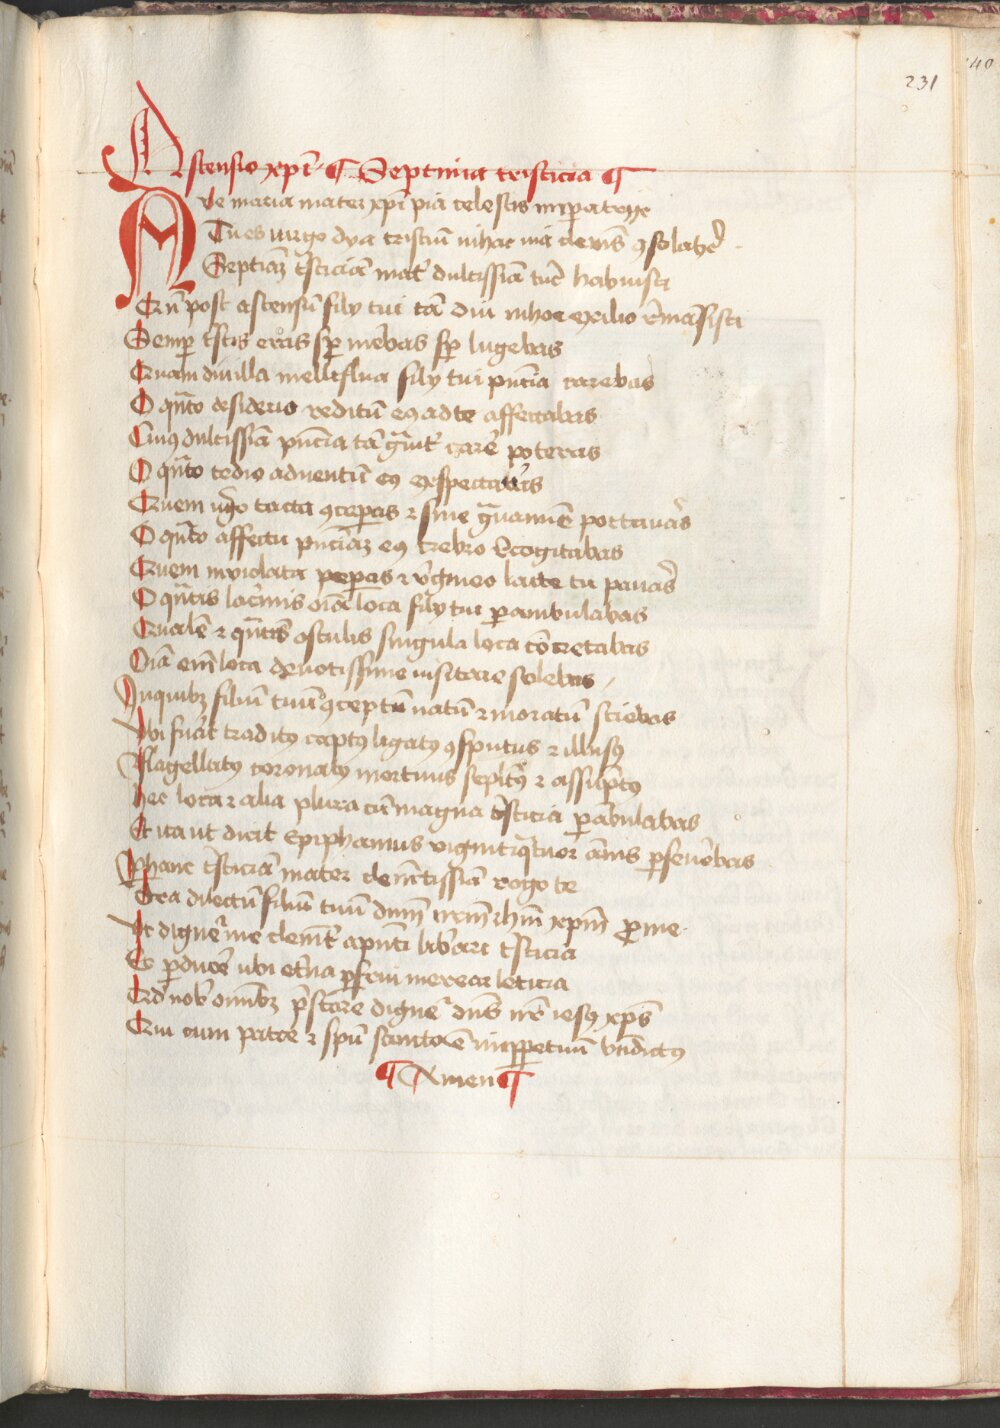 231
40
Ascensio xpi ¶ Septima tristicia ¶
Ave maria mater xpi pia celestis imperatrix
Tu es virgo dya tristium in hac via clemens ꝯsolatrix
Septimā tristiciā mater dulcissima tunc habuisti
Cū post ascensū filij tui tā diu in hoc exilio rēmāsisti
Semper tristis eras semper merebas semper lugebas
Quamdiu illa melliflua filij tui pñcia carebas
O qnto desiderio reditū eius ad te affectabas
Cuius dulcissīa pñcia tā graviter carere poteras
O qnto tedio adventū eius exspectabas
Quem virgo tacta ꝯceperas ⁊ sine gravamine portaveras
O qnto affectu pñciam eius crebro excogitabas
Quem inviolata pepereas ⁊ virgineo lacte tu paveras
O qntis lacrimis oīa loca filij tui perambulabas
Qualē ⁊ qntis osculis singula loca cōtrectabas
Oīa enī loca devotissime visitare solebas
In quibus filiū tuū ꝯceptū natū ⁊ moratū sciebas
Ubi fuerat traditus captus ligatus ꝯsputus ⁊ illusus
Flagellatus coronatus mortuus sepultus ⁊ assūptus
hec loca ⁊ alia plura cū magna tristicia perābulabas
Et ita ut dicit Epiphanius vigintiquatuor annis perseverabas
Phanc tristiciā mater clemētissīa rogo te
Ora dilectū filiū tuū dnm nrm ihm xpm pro me
Ut dignetur me clementer a pñti liberari tristicia
Et perducere ubi eterna perfrui merear leticia
Qd nob omnibus prestare dignetur dns nr iesus xps
Qui cum patre ⁊ spū sancto est in perpetuū bñdictus
¶ Amen ¶